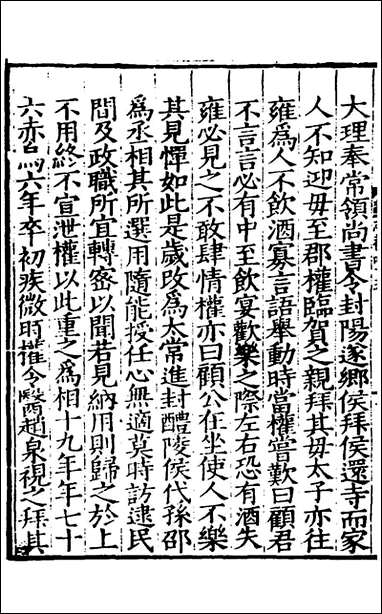 大理奉常領尚書令封陽遂鄉侯拜侯還寺而家
人不知迎母至郡權臨賀之親拜其母太子亦往
雍爲人不飲酒寡言語舉動時當權嘗歎曰顧君
不言言必有中至飲宴歡樂之際左右恐有酒失
雍必見之不敢肆情權亦曰顧公在坐使人不樂
其見憚如此是歲改爲太常進封醴陵侯代孫邵
爲丞相其所選用隨能授任心無適莫時訪逮民
間及政職所宜轉密以聞若見納用則歸之於上
不用終不宣泄權以此重之爲相十九年年七十
六赤烏六年卒初疾微時權令醫趙泉視之拜其